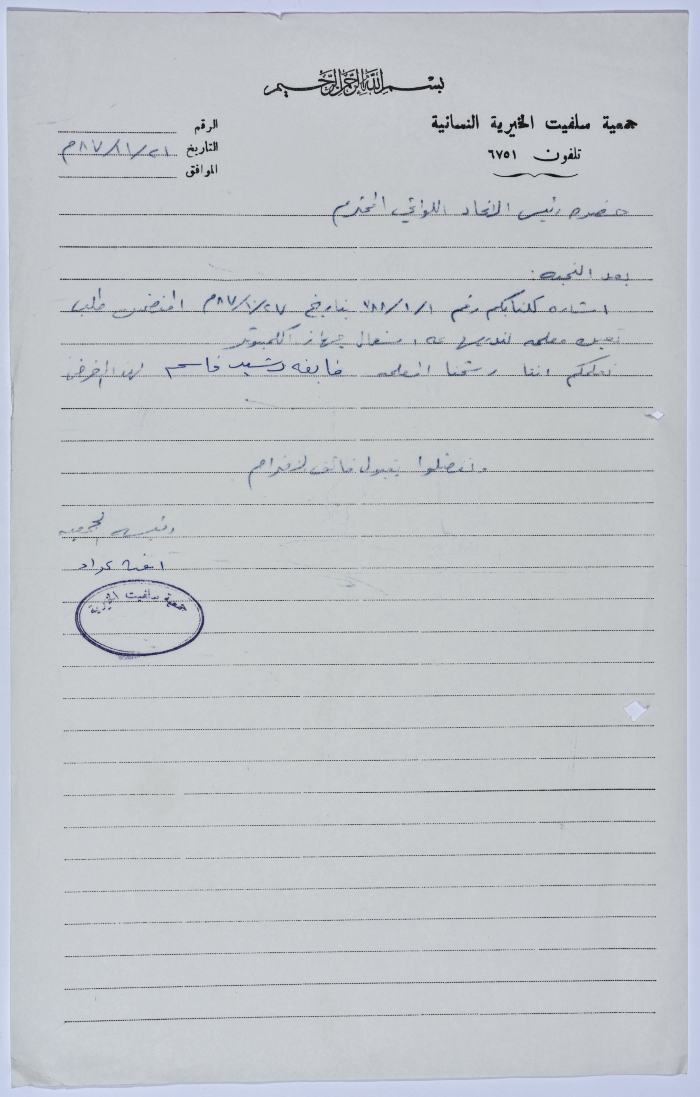 بسم الله الرحمن الرحيم
جمعية سلفيت الخيرية النسائية
تلفون ٦٧٥١
الرقم
التاريخ ٢١/١١/٨٧م
الموافق
حضرة رئيس الاتحاد اللوائي المحترم
بعد التحية:
اشارة لكتابكم رقم ٧٨٨/١/١ بتاريخ ٢٧/١٠/٨٧م المتضمن طلب
تعيين معلمة لتدريبها على استعمال جهاز الكمبيوتر
نعلمكم اننا رشحنا المعلمة فايقه رشيد قاسم لهذا الغرض
وتفضلوا بقبول فائق الاحترام
رئيسة الجمعية
جمعية سلفيت الخيرية